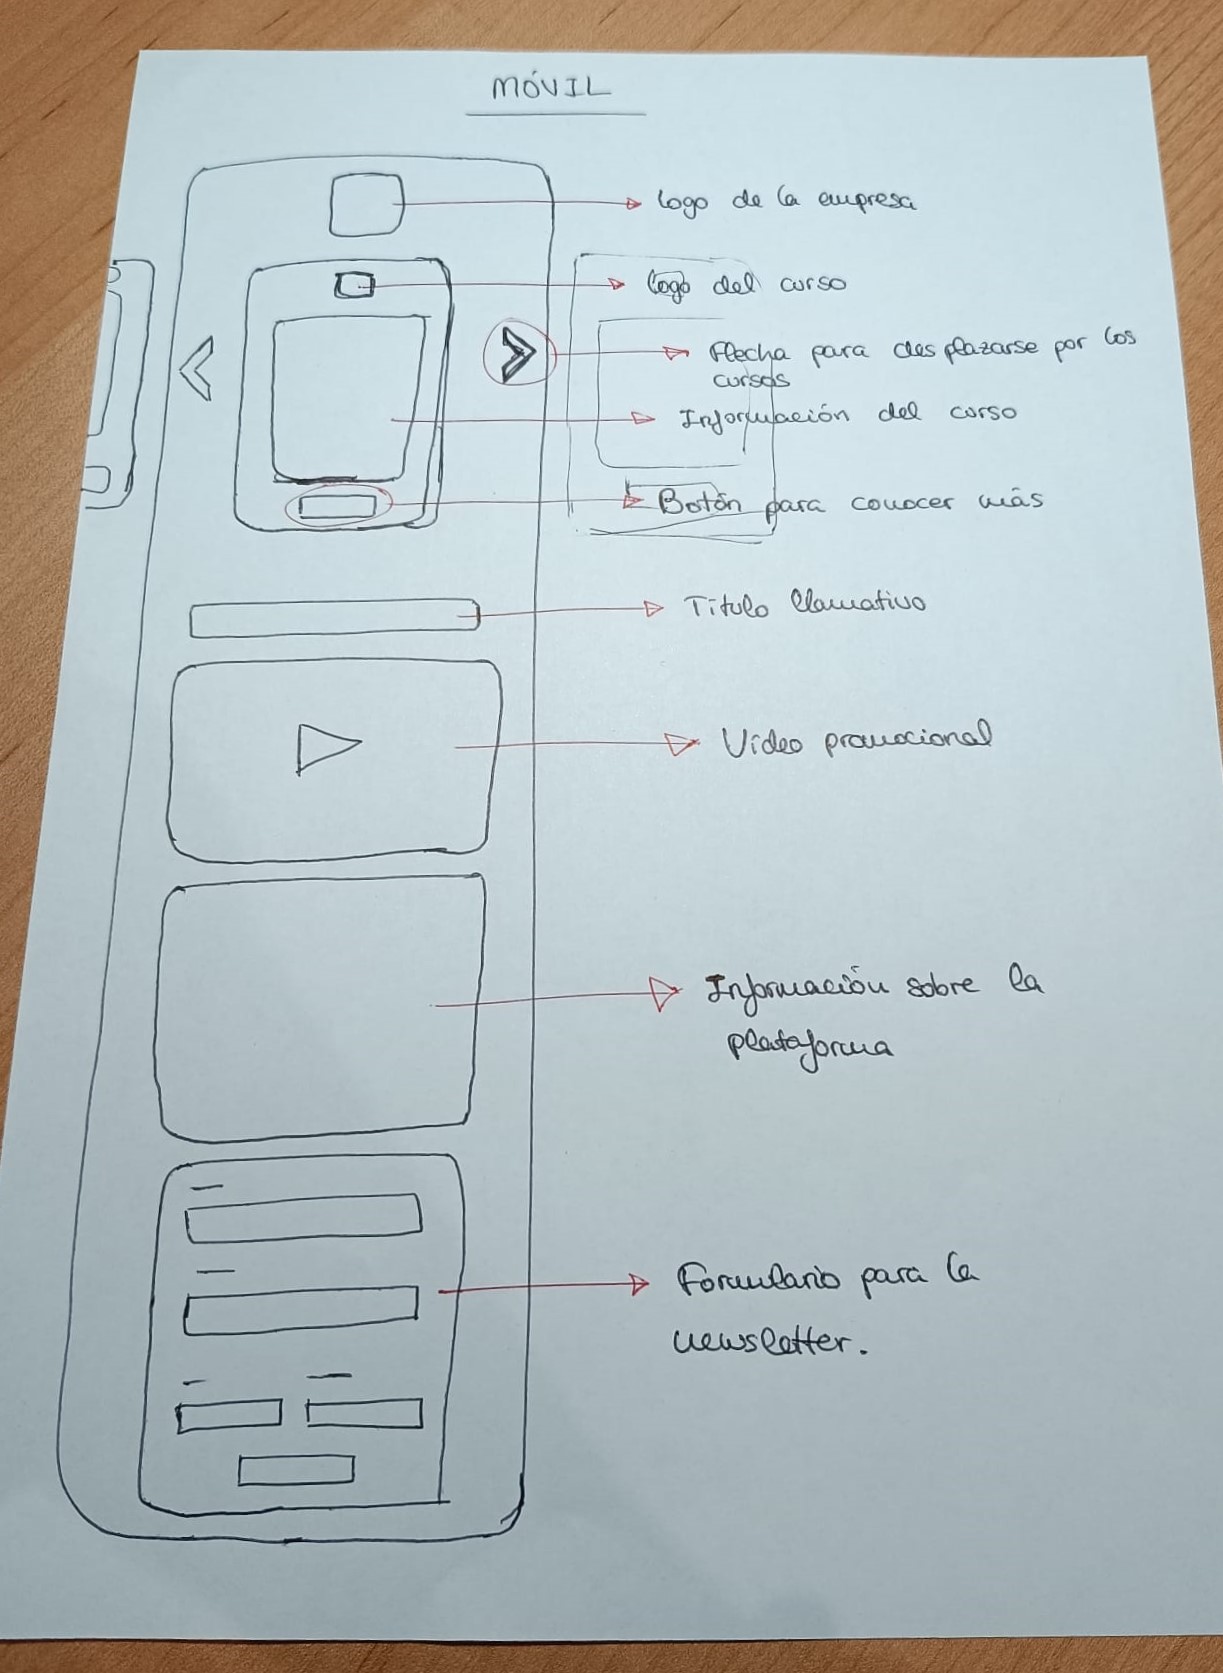 MÓVIL
logo de la empresa
logo del curso
Flecha para desplazarse por los
cursos
Información del curso
Botón para conocer más
Título llamativo
Vídeo promocional
Información sobre la
plataforma
Formulario para la
newsletter.